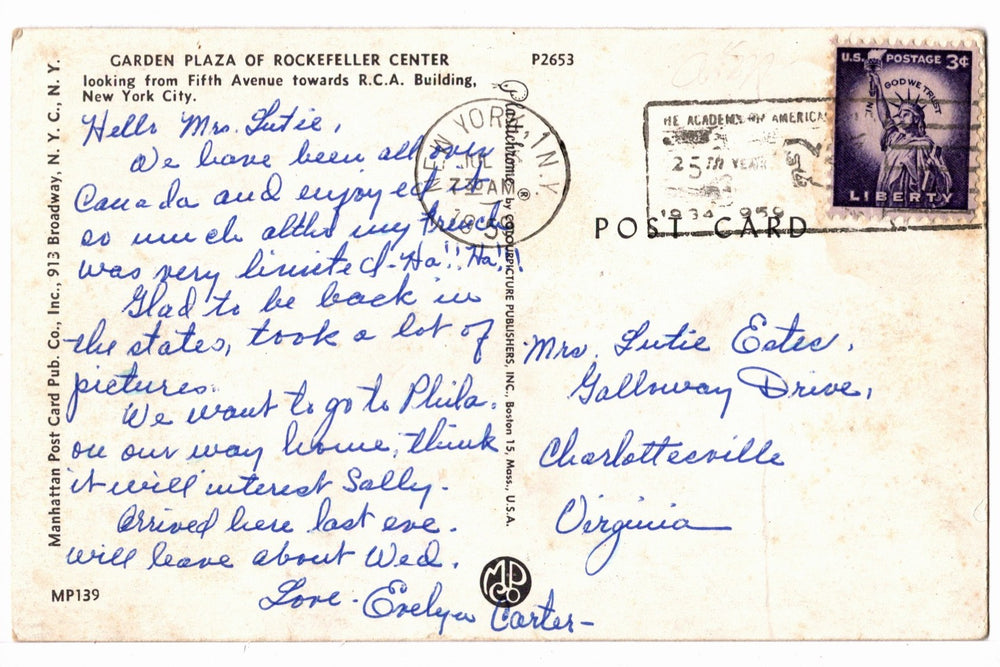 GARDEN PLAZA OF ROCKEFELLER CENTER
looking from Fifth Avenue towards R.C.A. Building,
New York City.
P2653
Hello Mrs. Lutie,
We have been all over
Canada and enjoyed it
so much altho my french
was very limited-Ha!! Ha!!
Glad to be back in
the states, took a lot of
pictures.
We want to go to Phila.
on our way home, think
it will interest Sally.
Arrived here last eve.
will leave about Wed.
Love - Evelyn Carter-
MP139
Manhattan Post Card Pub. Co., Inc., 913 Broadway, N. Y. C., N. Y.
Plastichrome ® by COLOURPICTURE PUBLISHERS, INC., Boston 15, Mass., U.S.A.
MP
CO
NEW YORK, 1 N.Y.
JUL
AM
HE ACADEMY AMERICA
25TH YEAR
1934 1959
U.S. POSTAGE 3¢
IN GOD WE TRUST
LIBERTY
POST CARD
Mrs. Lutie Estes,
Galloway Drive,
Charlottesville
Virginia